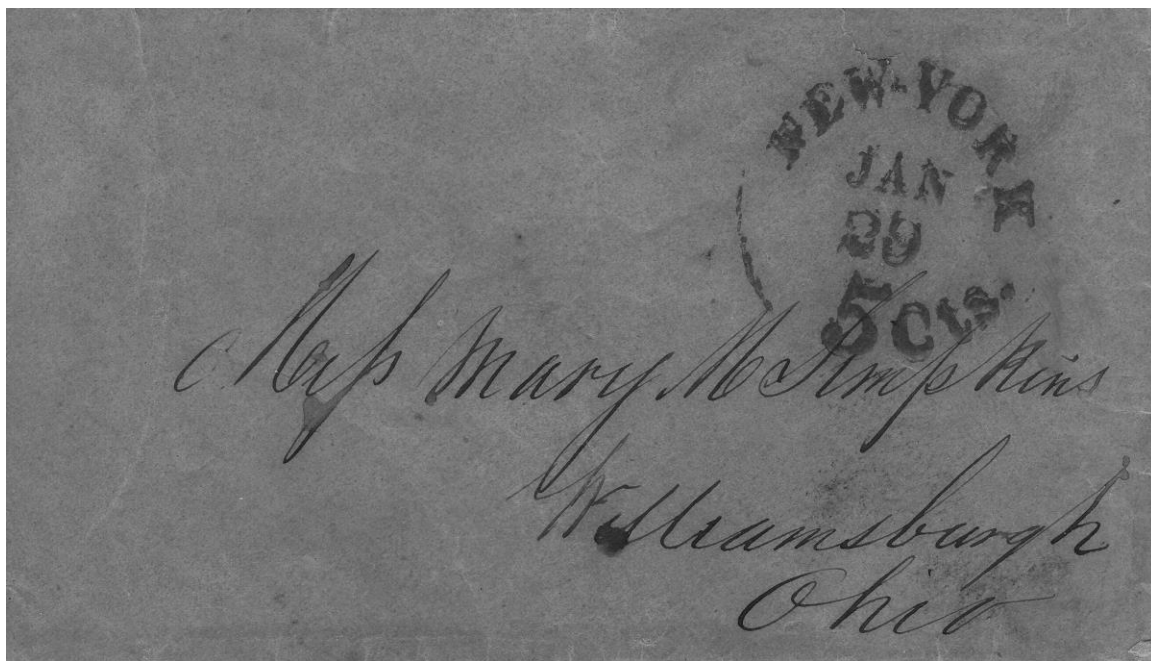 NEW-YORK
JAN
29
5 Cts.
Miss Mary M Simpkins
Williamsburgh
Ohio